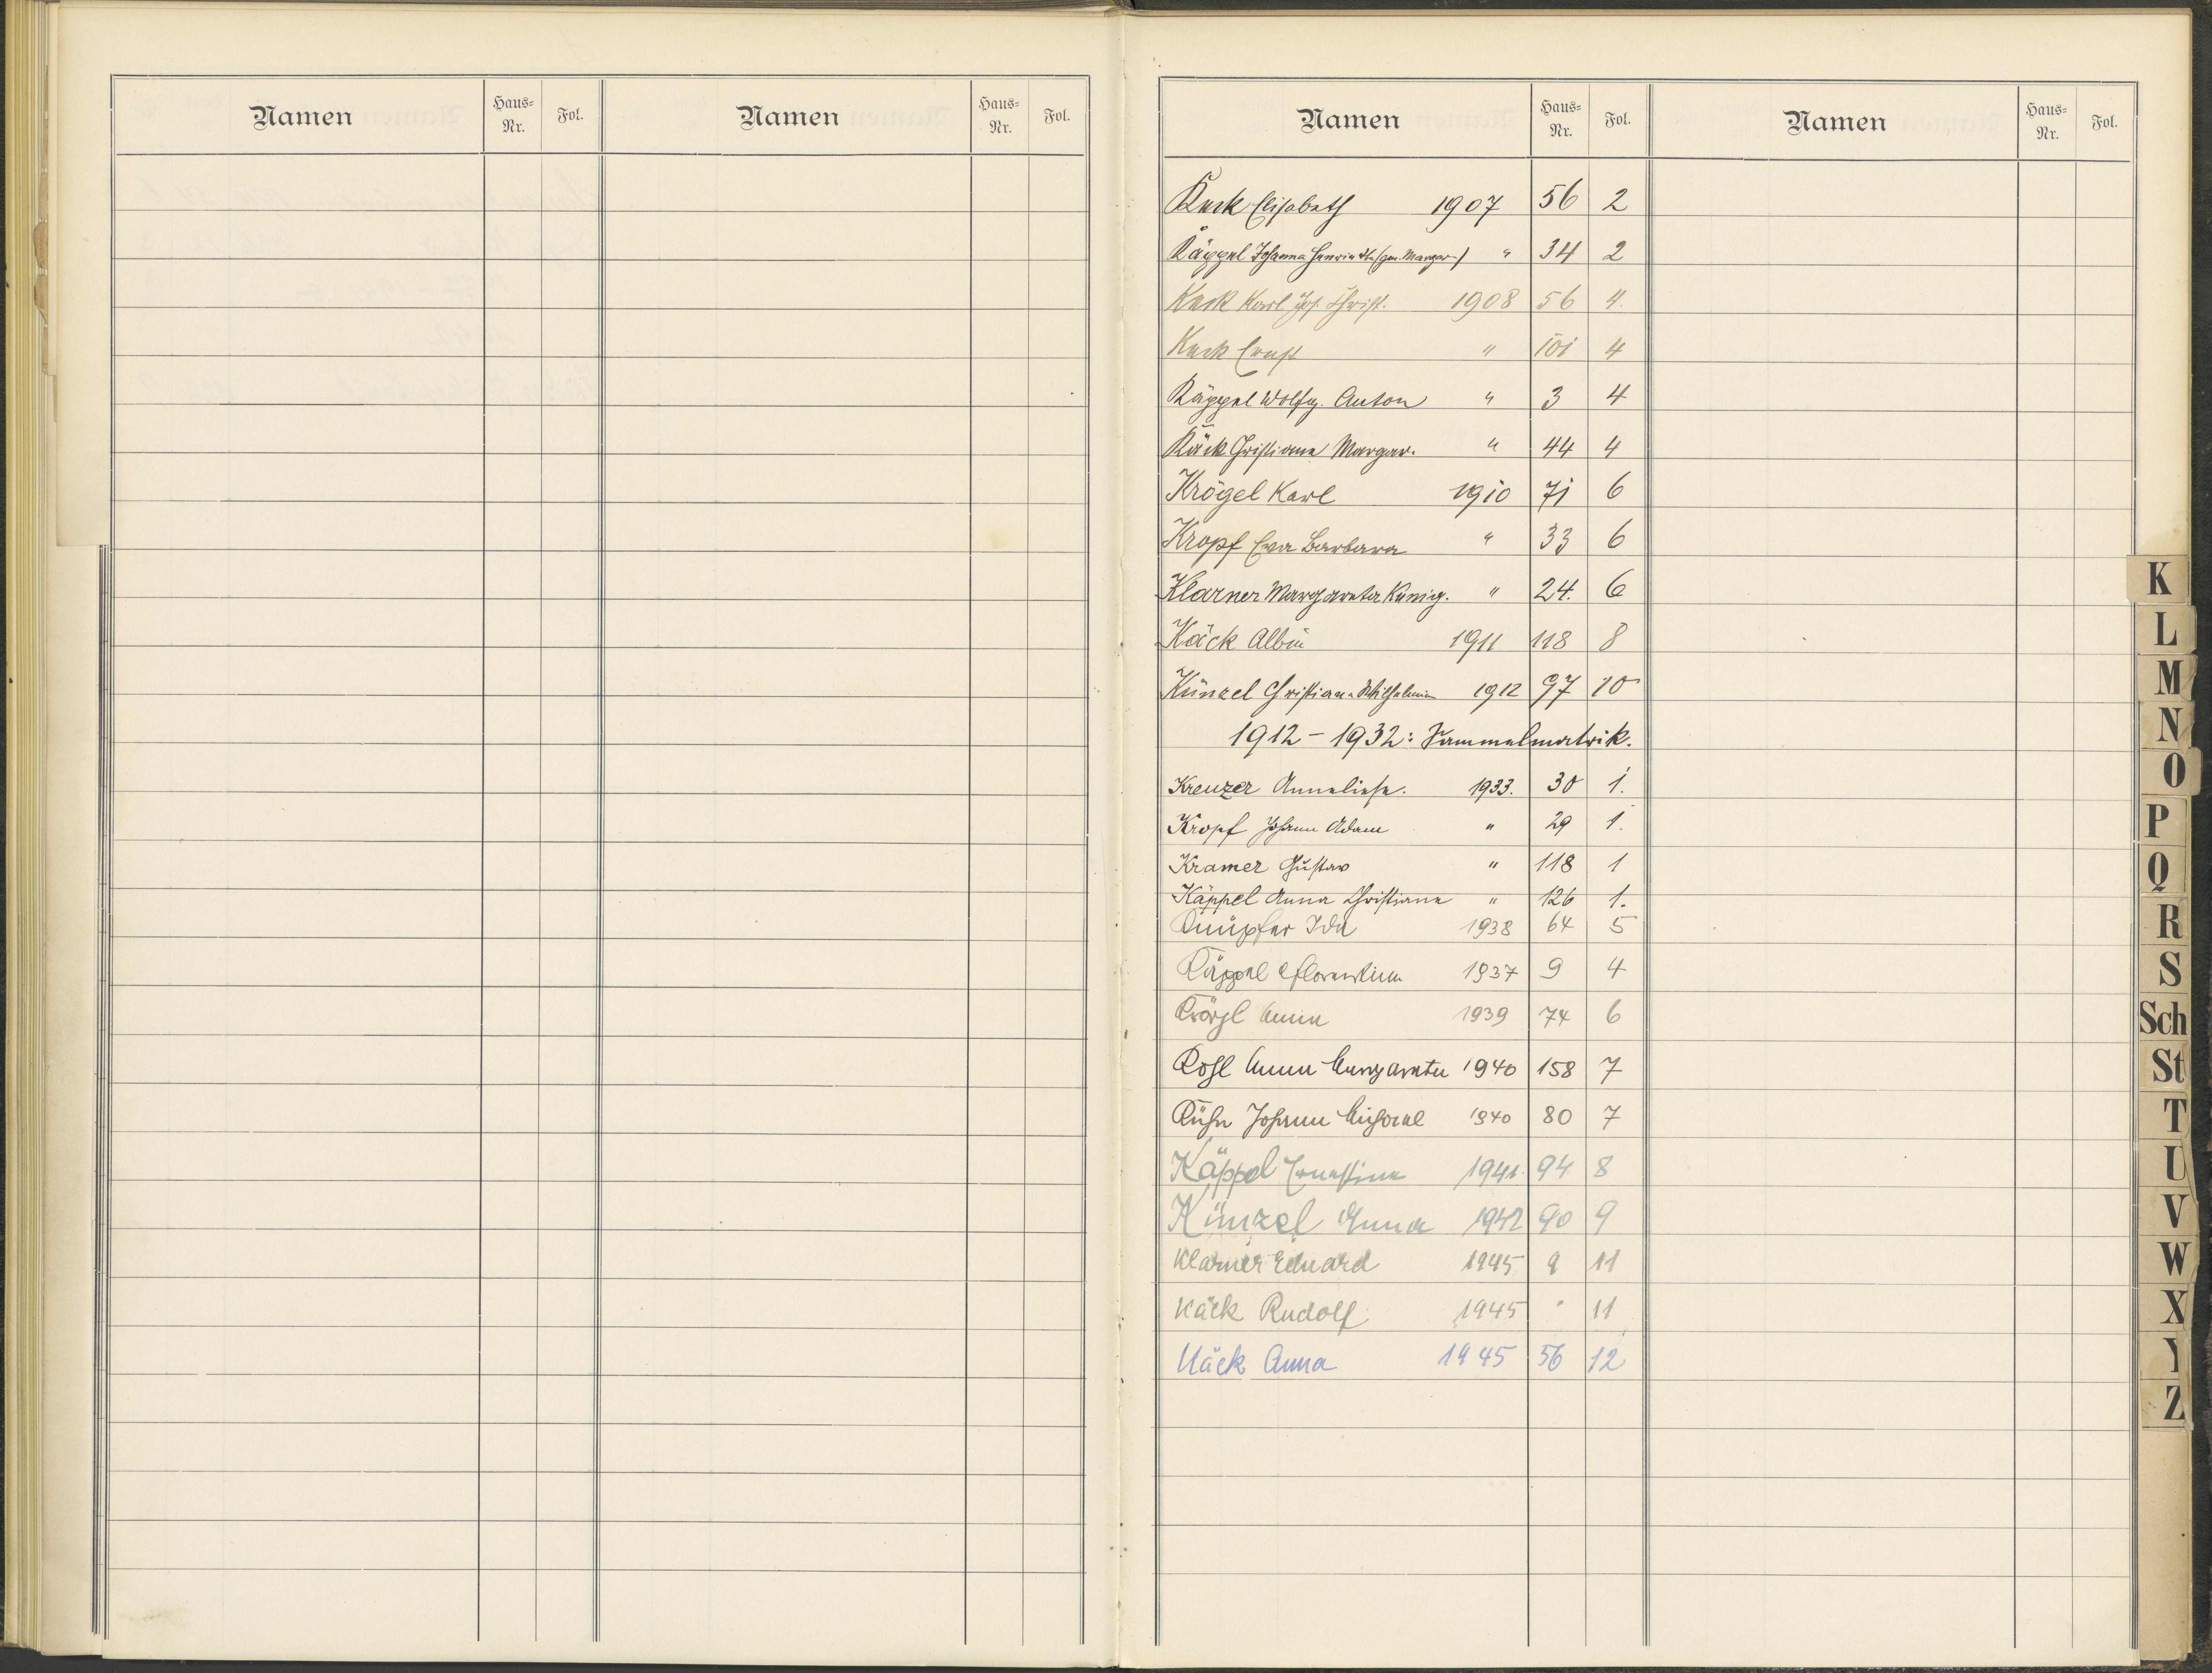 Namen Haus-Nr. Fol. Namen Haus-Nr. Fol.
Namen Haus-Nr. Fol. Namen Haus-Nr. Fol.
Keck Elisabeth 1907 56 2
Käppel Johanna Henriette (gen. Margar.) " 34 2
Keck Karl Joh. Christ. 1908 56 4.
Keck Ernst " 101 4
Käppel Wolfg. Anton " 3 4
Käck Christiana Margar. " 44 4
Krögel Karl 1910 71 6
Kropf Eva Barbara " 33 6
Klarner Margareta Kunig. " 24. 6
Käck Albin 1911 118 8
Künzel Christiana Wilhelmine 1912 97 10
1912 - 1932: Sammelmatrik.
Kreuzer Anneliese. 1933. 30 1.
Kropf Johann Adam " 29 1.
Kramer Gustav " 118 1
Käppel Anna Christiana " 126 1.
Knüpfer Ida 1938 64 5
Käppel Florentine 1937 9 4
Krögl Anna 1939 74 6
Kohl Anna Margareta 1940 158 7
Kühn Johann Michael 1940 80 7
Käppel Ernestine 1941. 94 8
Künzel Anna 1942 90 9
Klarner Eduard 1945 9 11
Käck Rudolf 1945 " 11
Käck Anna 1945 56 12
K
L
M
N
O
P
Q
R
S
Sch
St
T
U
V
W
X
Y
Z